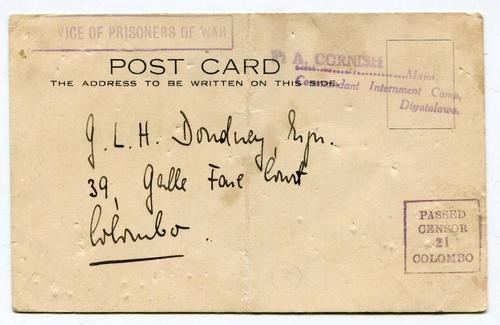 VICE OF PRISONERS OF WAR
A. CORNISH
Major,
Commandant Internment Camp,
Diyatalawa.
POST CARD
THE ADDRESS TO BE WRITTEN ON THIS SIDE.
G. L. H. Doudney, Esqr.
39, Galle Face Court
Colombo.
PASSED
CENSOR
21
COLOMBO